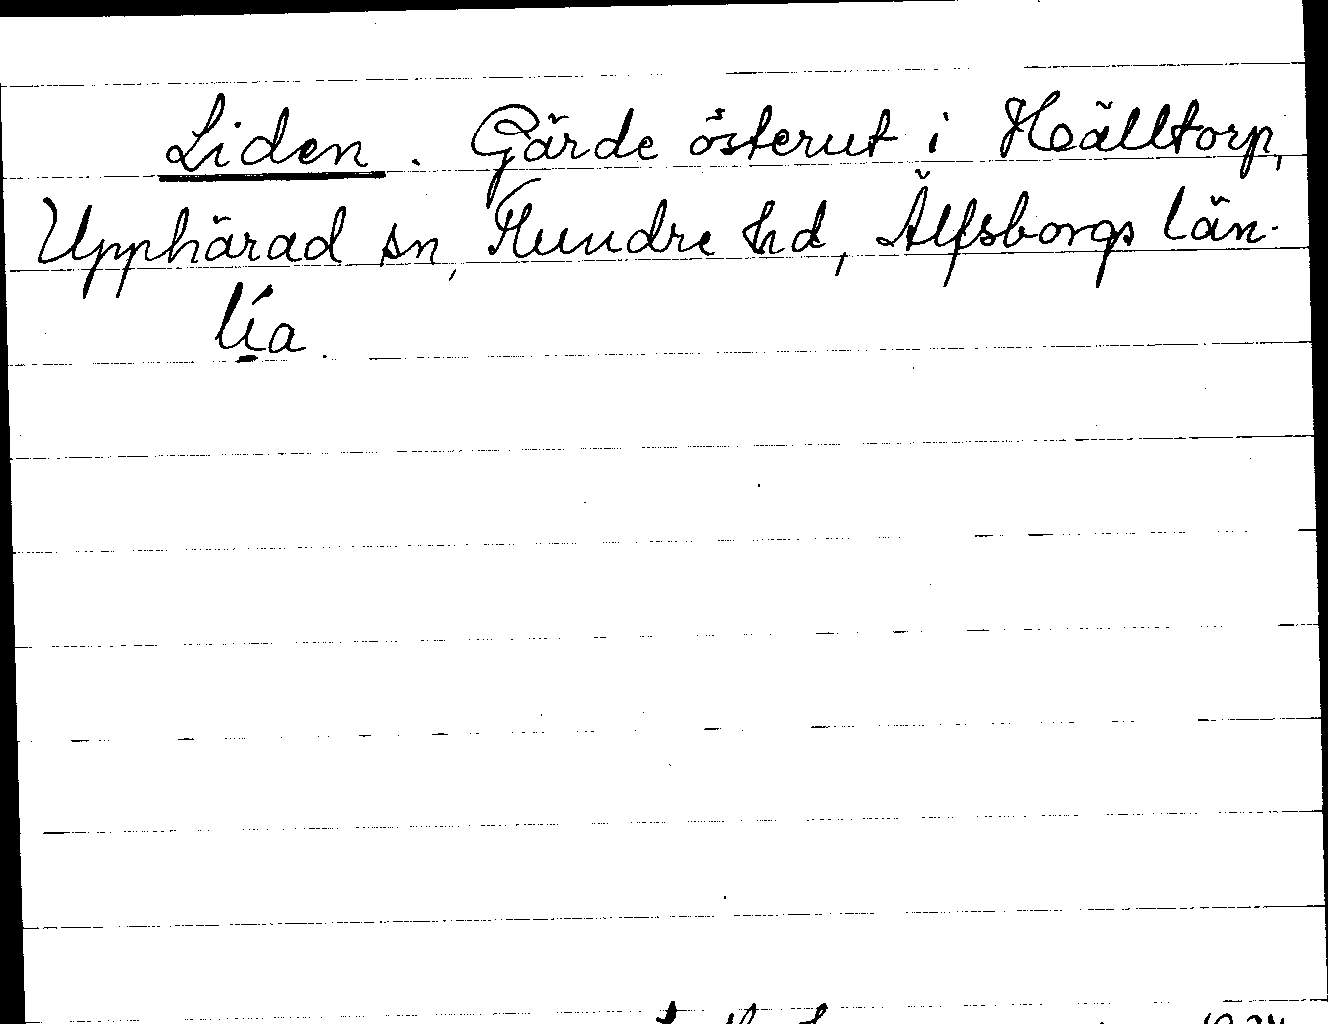 Liden. Gärde österut i Hälltorp,
Upphärad sn, Flundre hd, Älfsborgs län.
lí̱a.